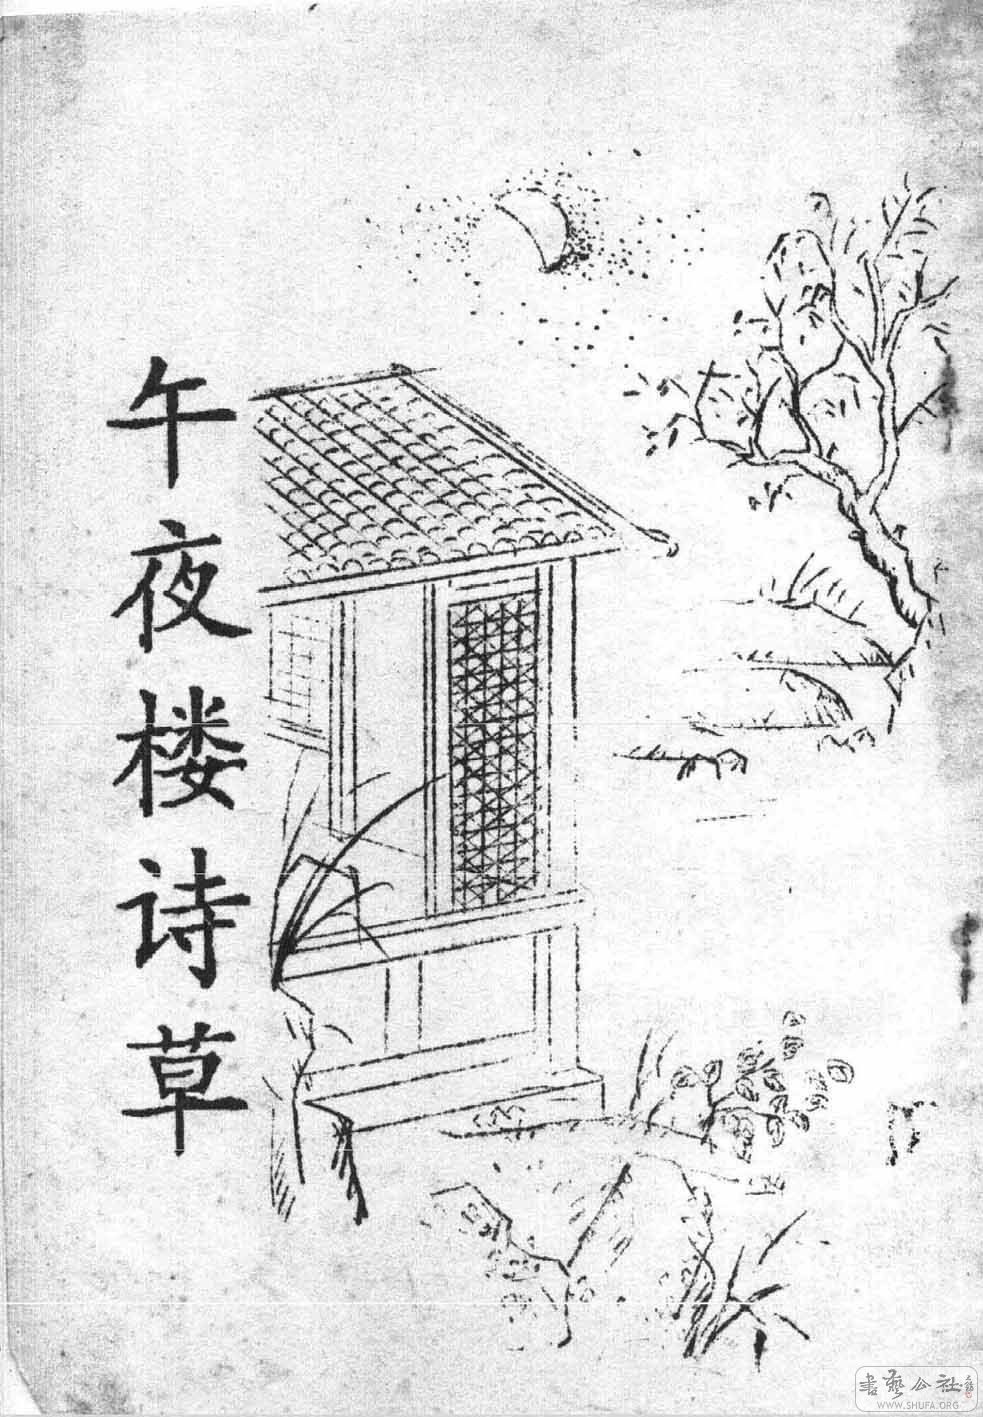 午夜楼诗草
書藝公社
WWW.SHUFA.ORG